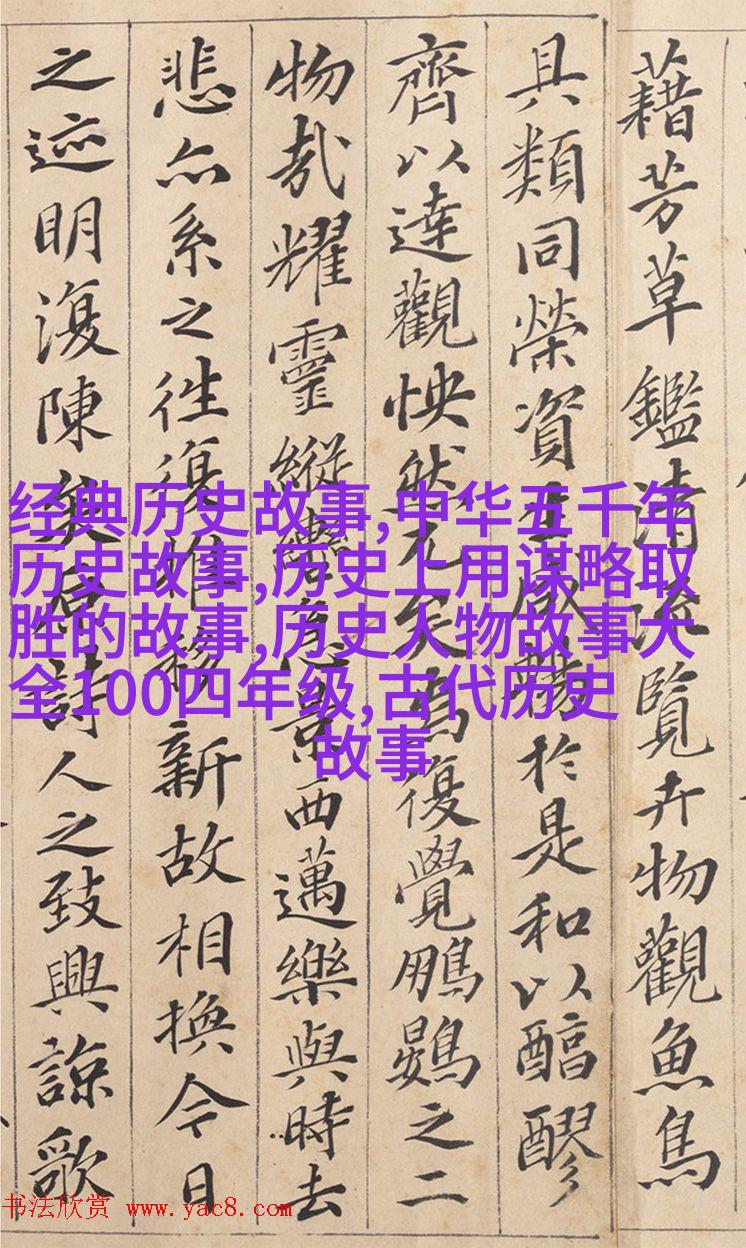 藉芳草鑑清流覽卉物觀魚鳥
具類同榮資生咸暢於是和以醇醪
齊以達觀怏然兀矣焉復覺鵬鷃之二
物哉耀靈縱轡急景西邁樂與時去
悲亦系之往復推移新故相換今日
之迹明復陳矣原詩人之致興諒歌
经典历史故事,中华五千年
历史故事,历史上用谋略取
胜的故事,历史人物故事大
全100四年级,古代历史
故事
书法欣赏 www.yac8.com